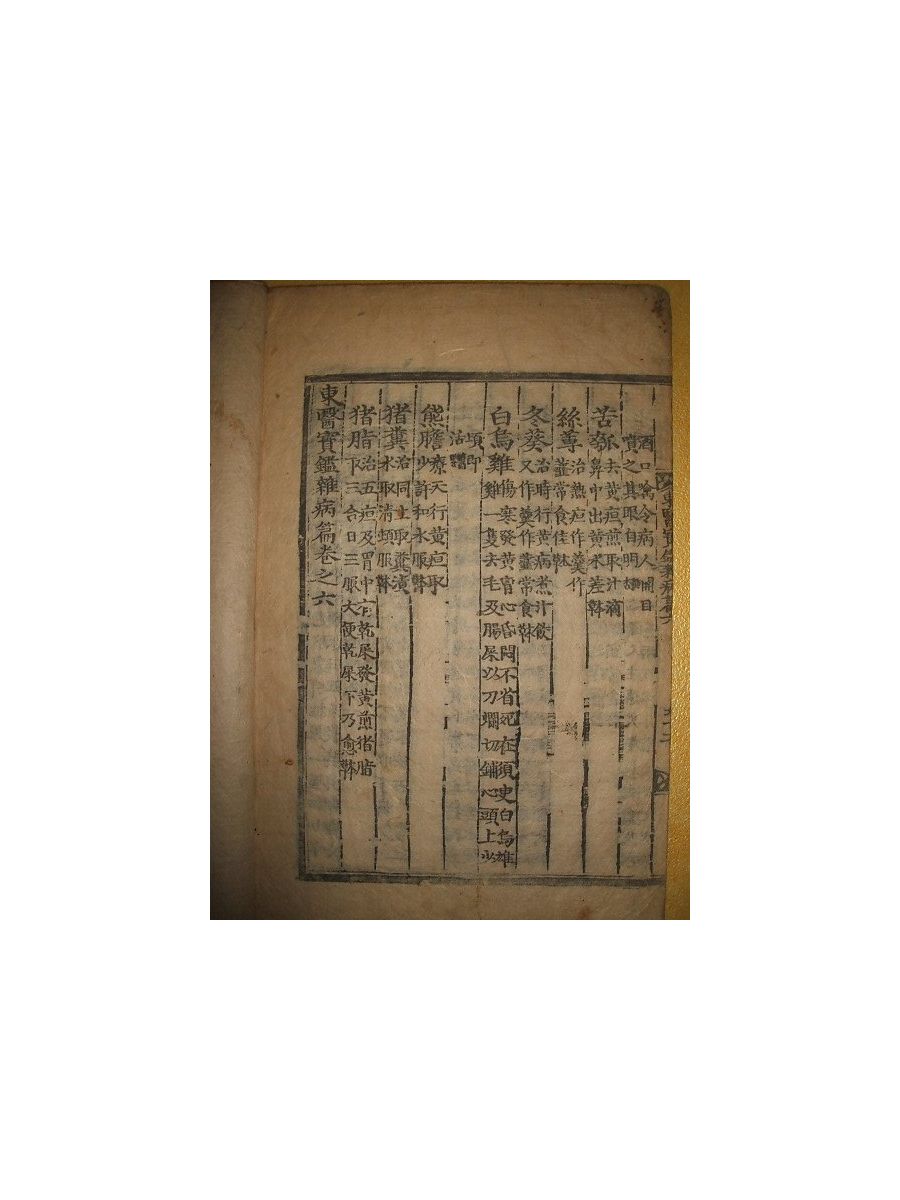 酒口噙令病人開目
噴之其眼自明
苦瓠
去黃疸煎取汁滴
鼻中出黃水差
絲蓴
治熱疸作羹作
虀常食佳
冬葵
治時行黃病煮汁飮
又作羹作虀常食
白烏雞
傷寒發黃 心昏悶不省死在須臾白烏雄
雞一隻去毛及腸屎以刀 切鋪心頭上少
頃卽
活
熊膽
療天行黃疸取
少許和水服
猪糞
治同上取糞漬
水取淸頓服
猪脂
治五疸及胃中有乾屎發黃煎猪脂
下三合日三服大便乾屎下乃愈
東醫寶鑑雜病篇卷之六
東醫寶鑑雜病篇六